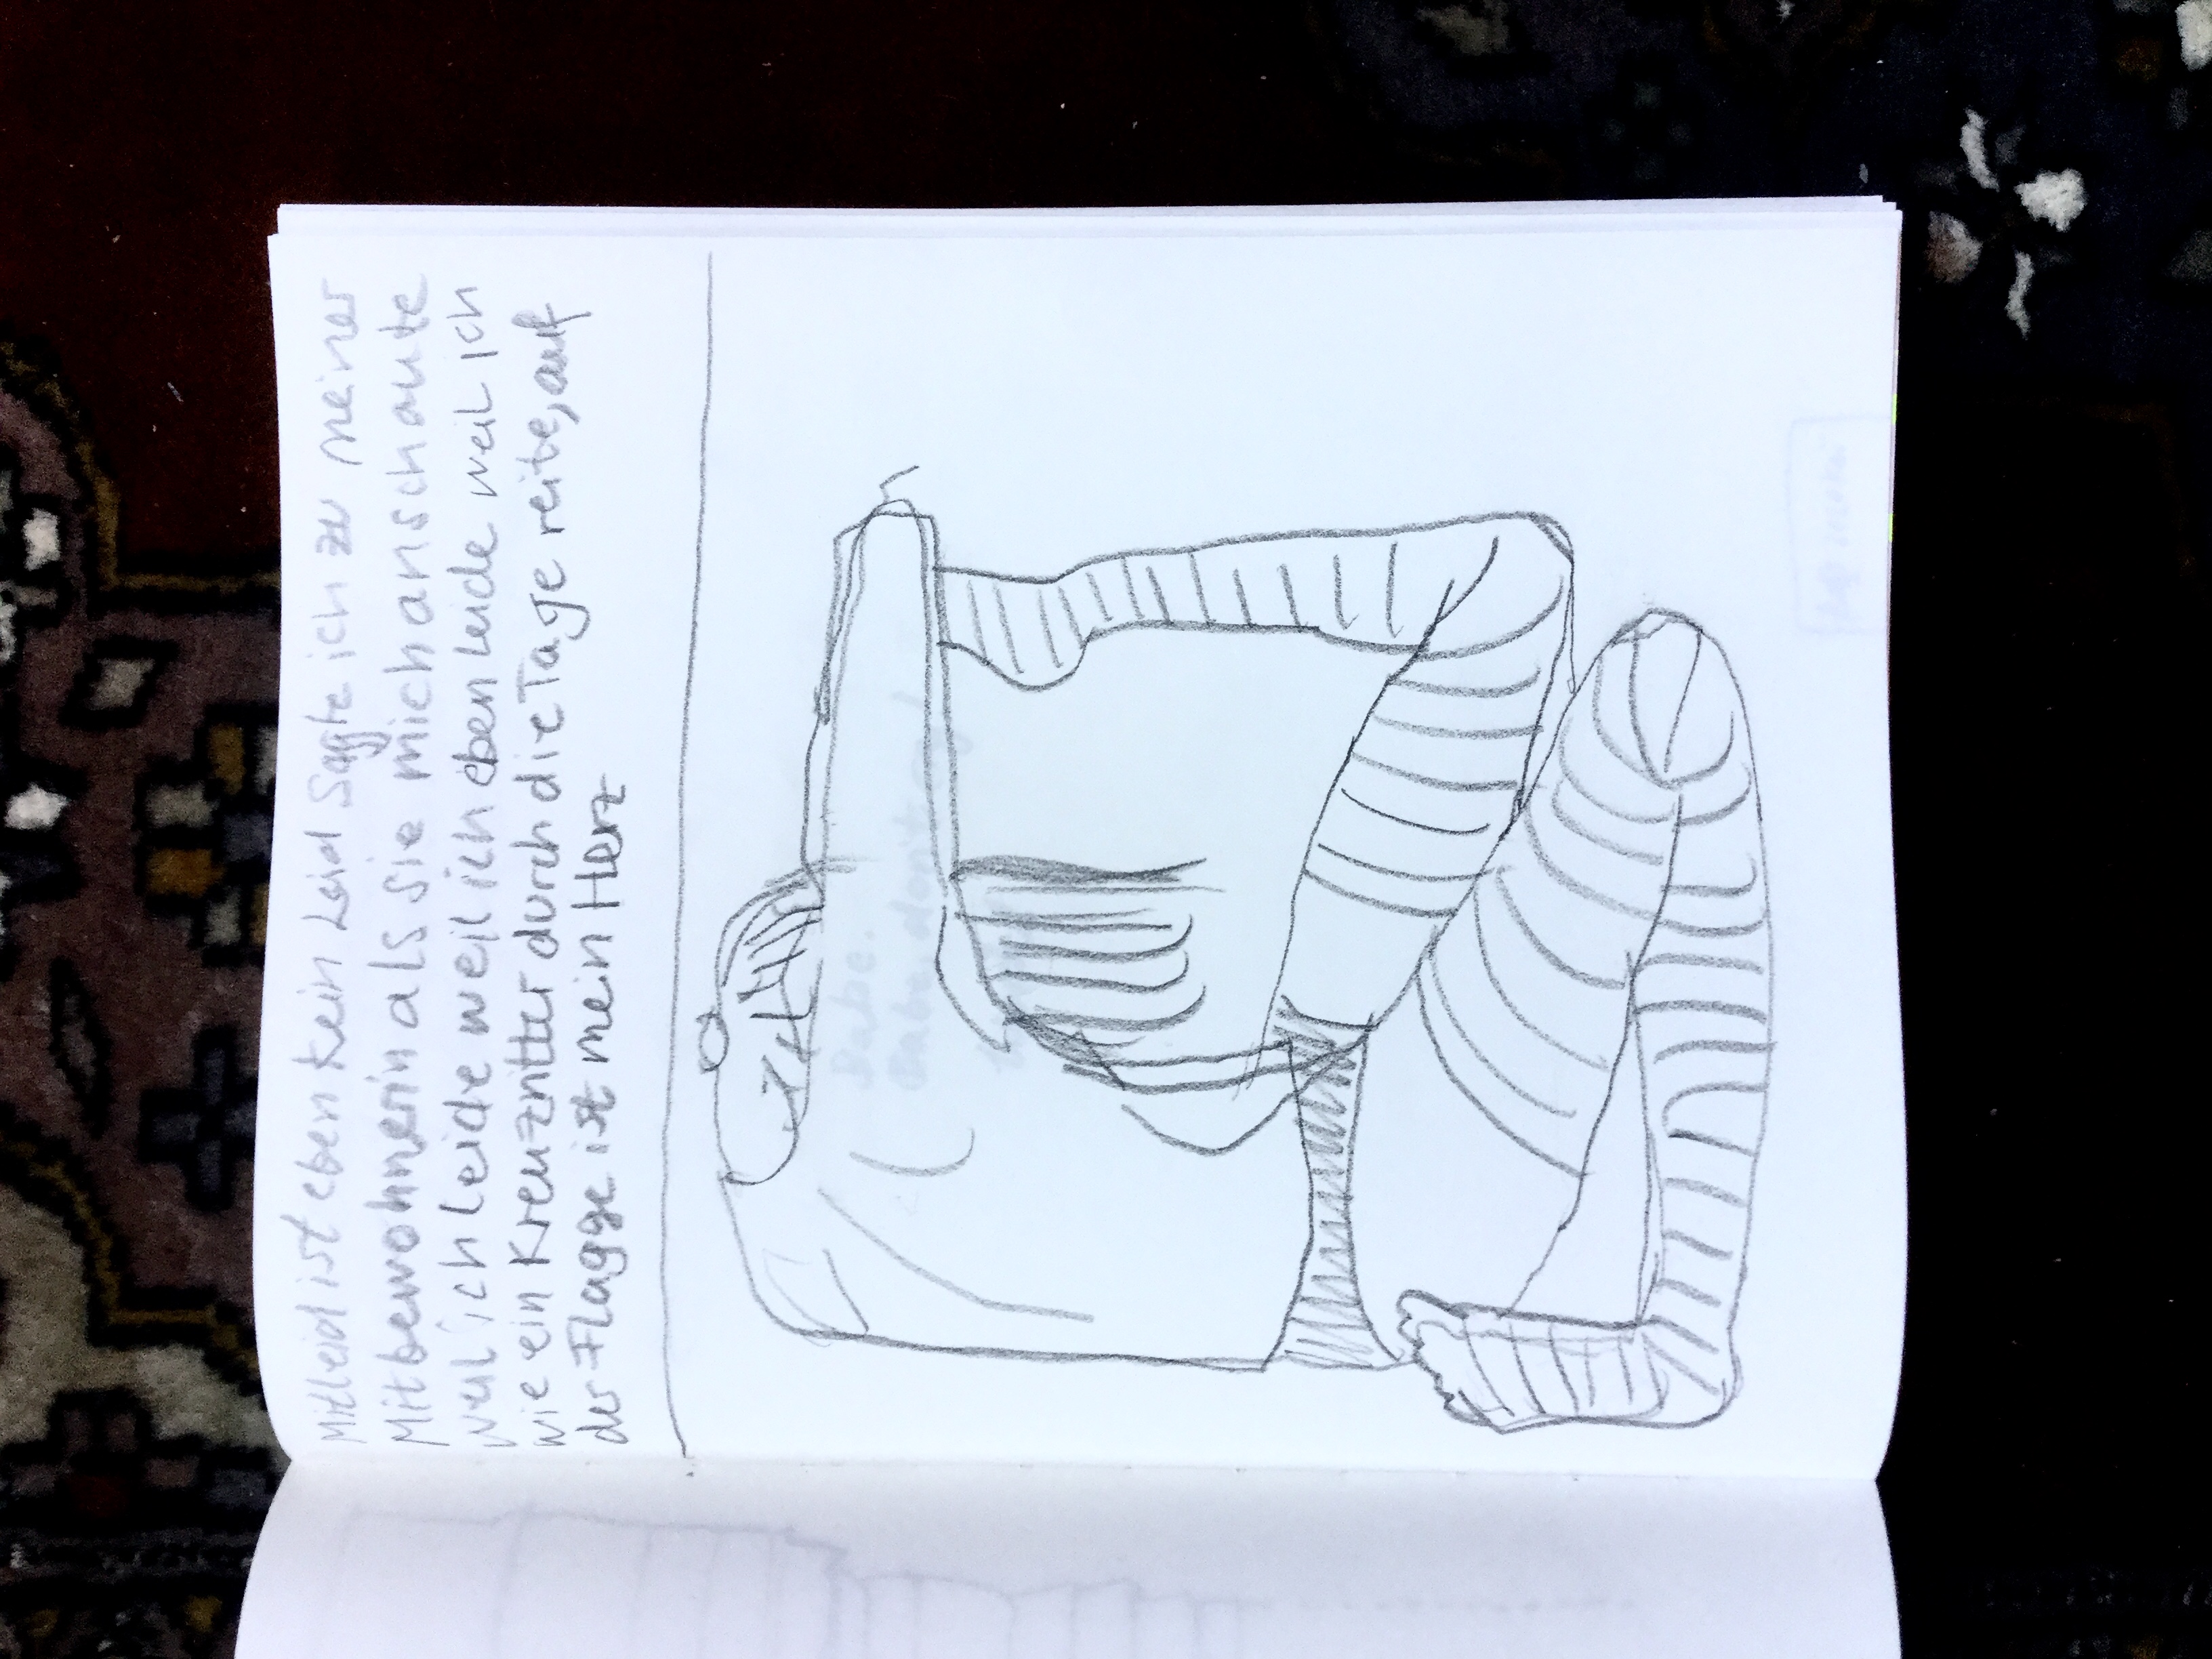 Mitleid ist eben kein Leid sagte ich zu meiner
Mitbewohnerin als sie mich anschaute
weil ich leide weil ich eben leide weil ich
wie ein Kreuzritter durch die Tage reite, auf
der Flagge ist mein Herz